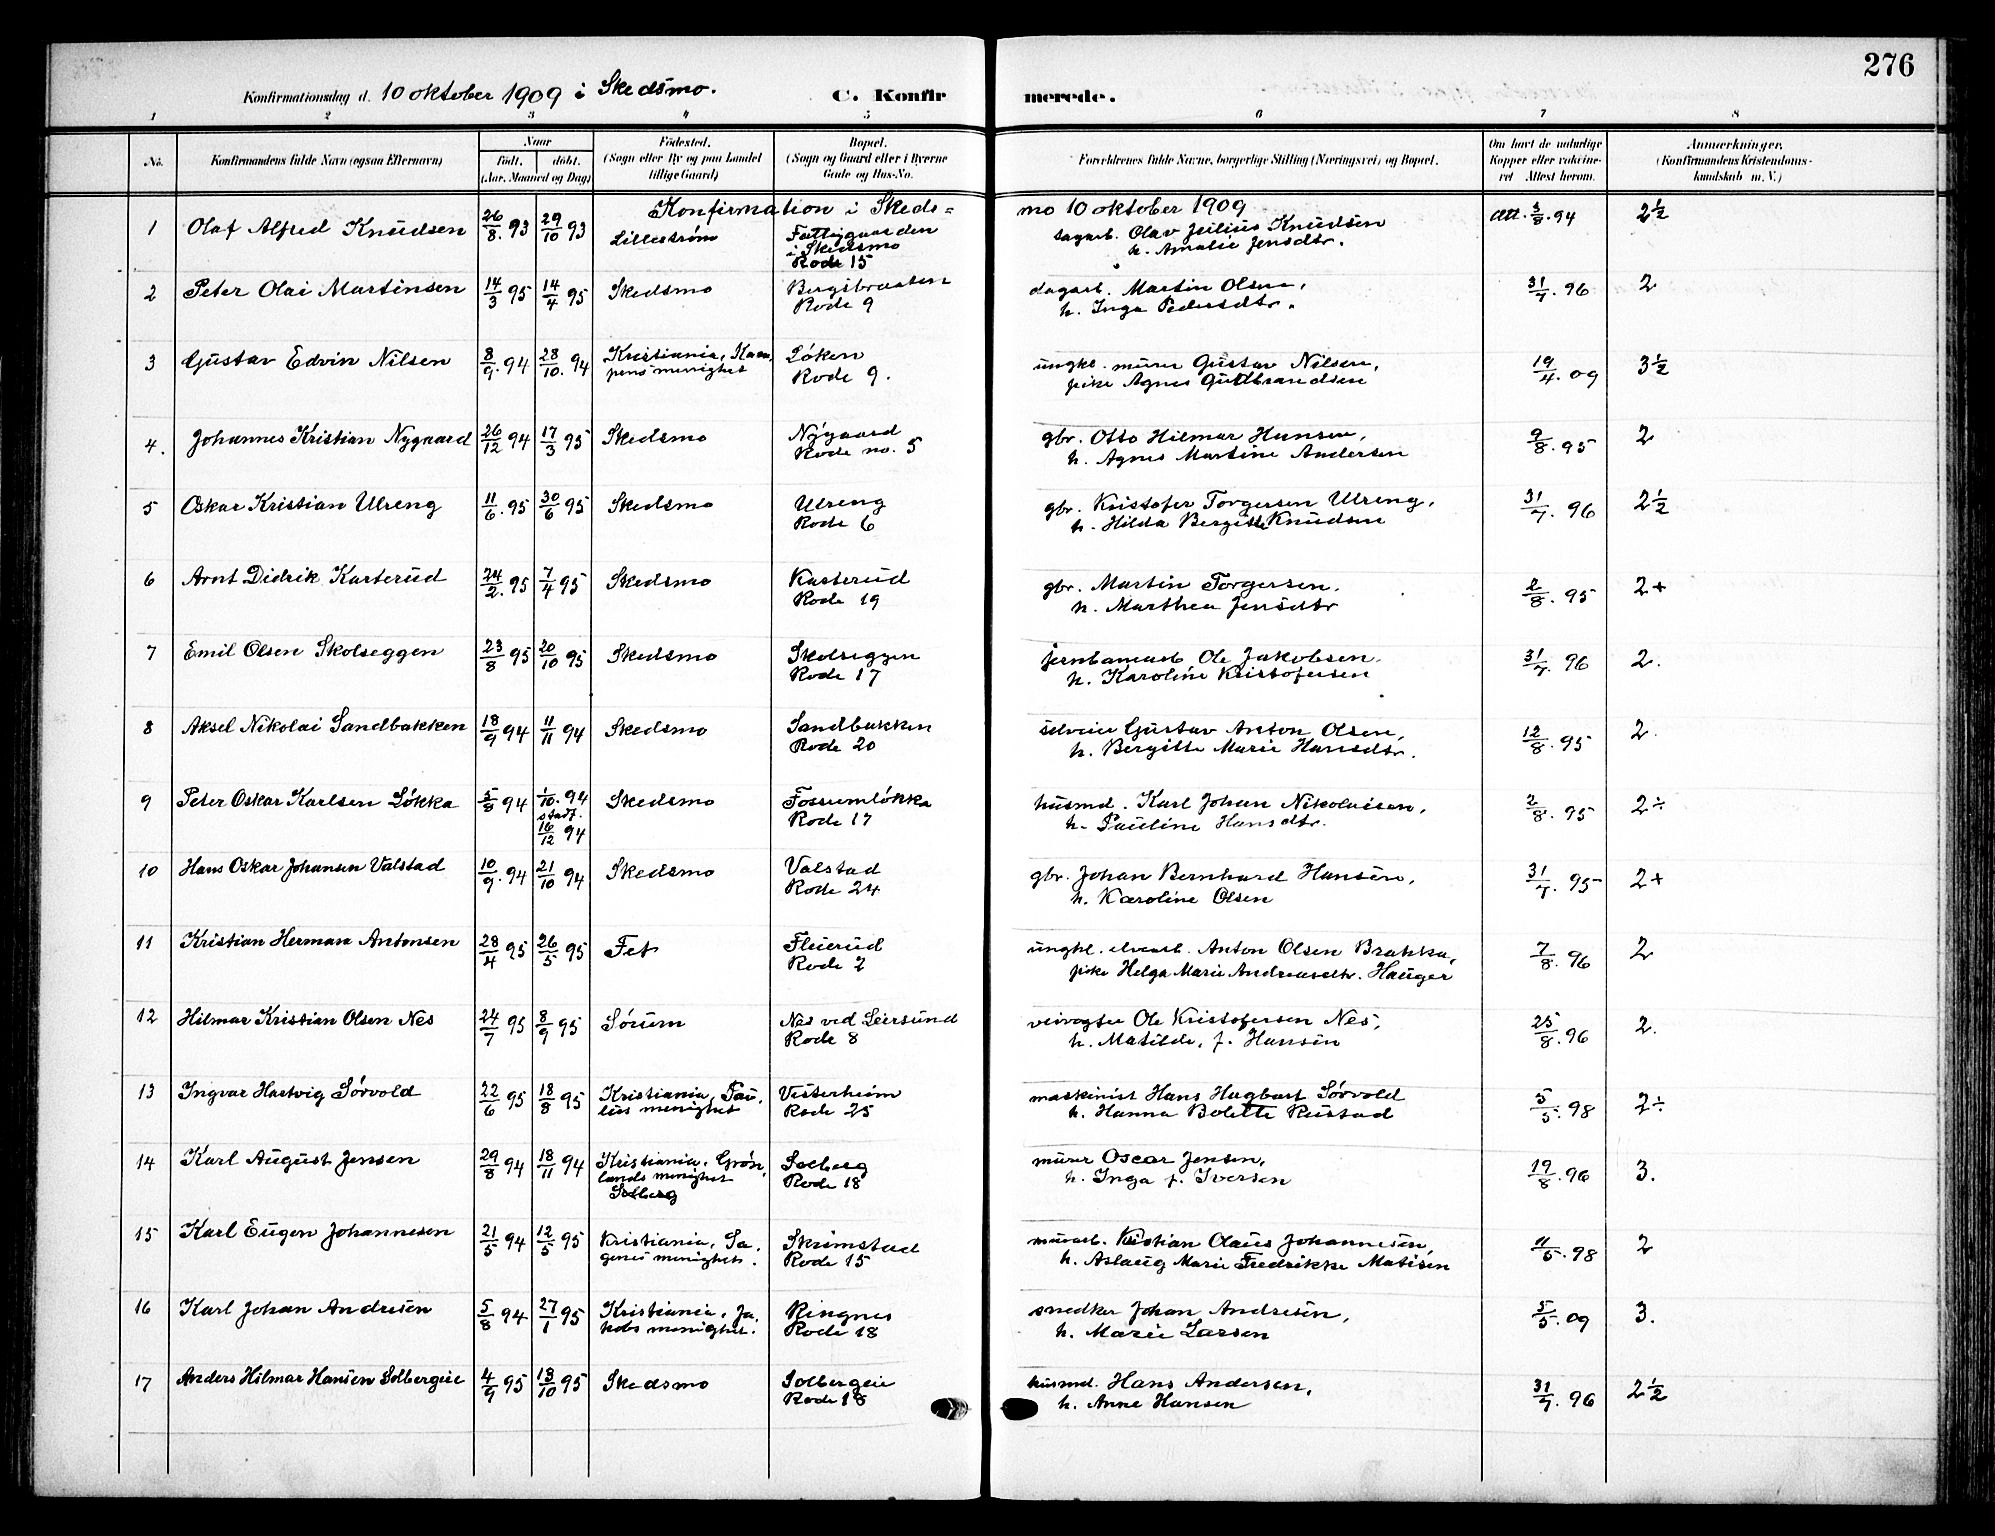 276
Konfirmationsdag d. 10 oktober 1909 i Skedsmo. C. Konfirmerede.
1 2 3 4 5 6 7 8
No. Konfirmandens fulde Navn (ogsaa Efternavn) Naar født. døbt. (Aar, Maaned og Dag) Fødested. (Sogn eller By og paa Landet tillige Gaard) Bopæl. (Sogn og Gaard eller i Byerne Gade og Hus-No. Forældrenes fulde Navne, borgerlige Stilling (Næringsvei) og Bopæl. Om havt de naturlige Kopper eller vakcineret Attest herom. Anmærkninger. (Konfirmandens Kristendomskundskab m. V.)
Konfirmation i Skedsmo 10 oktober 1909
1 Olaf Alfred Knudsen 26/8. 93 29/10 93 Lillestrøm Fattiggaarden i Skedsmo Rode 15 sagarb. Olav Julius Knudsen h. Amalie Jensdtr. Att. 3/8. 94 2½
2 Peter Olai Martinsen 14/3 95 14/4 95 Skedsmo Bergsbraaten Rode 9 dagarb. Martin Olsen, h. Inga Pedersdtr. 31/7. 96 2
3 Gustav Edvin Nilsen 8/9. 94 28/10. 94 Kristiania, Kampens menighet Løken Rode 9. ungkl. murer Gustav Nilsen, pike Agnes Gudbrandsen 19/4. 09 3½
4. Johannes Kristian Nygaard 26/12 94 17/3 95 Skedsmo Nygaard Rode no. 5 gbr. Otto Hilmar Hansen, h. Agnes Martine Andersen 9/8. 95 2
5 Oskar Kristian Ulreng 11/6. 95 30/6 95 Skedsmo Ulreng Rode 6 gbr. Kristofer Torgersen Ulreng, h. Hilda Bergitte Knudsen 31/7. 96 2½
6 Arnt Didrik Karterud 24/2. 95 7/4 95 Skedsmo Kasterud Rode 19 gbr. Martin Torgersen, h. Marthea Jensdtr 2/8. 95 2+
7 Emil Olsen Skolseggen 23/8 95 20/10 95 Skedsmo Skolseggen Rode 17 jernbanearb. Ole Jakobsen. h. Karoline Kristofersen 31/7. 96 2.
8 Aksel Nikolai Sandbakken 18/9 94 11/11 94 Skedsmo Sandbakken Rode 20 selveier Gustav Anton Olsen, h. Bergitte Marie Hansdtr. 12/8. 95 2.
9 Peter Oskar Karlsen Løkka 5/8 94 1/10. 94 stadf. 16/12 94 Skedsmo Fossumløkka Rode 17 husmd. Karl Johan Nikolaisen, h. Pauline Hansdtr. 2/8. 95 2÷
10 Hans Oskar Johansen Valstad 10/9. 94 21/10 94 Skedsmo Valstad Rode 24 gbr. Johan Bernhard Hansen, h. Karoline Olsen 31/7. 95 2+
11 Kristian Herman Antonsen 28/4 95 26/5 95 Fet Fleierud Rode 2 ungkl. elvearb. Anton Olsen Brakka, pike Helga Marie Andreasdtr. Hauger 7/8. 96 2
12 Hilmar Kristian Olsen Nes 24/7 95 8/9 95 Sørum Nes ved Leirsund Rode 8 veivogter Ole Kristofersen Nes, h. Matilde, f. Hansen 25/8. 96 2.
13 Ingvar Hartvig Sørvold 22/6 95 18/8 95 Kristiania, Paulus menighet Vesterheim Rode 25 maskinist Hans Hagbart Sørvold h. Hanna Bolette Rustad 5/5. 98 2÷
14 Karl August Jensen 29/8 94 18/11 94 Kristiania. Grønlands menighet Solberg Solberg Rode 18 murer Oscar Jensen, h. Inga f. Iversen 19/8. 96 3.
15 Karl Eugen Johannesen 21/5 94 12/5 95 Kristiania, Sagenes menighet. Skrimstad Rode 15 murarb. Kristian Olaus Johannesen, h. Aslaug Marie Fredrikke Matisen 11/5. 98 2
16 Karl Johan Andresen 5/8 94 27/1 95 Kristiania, Jakobs menighet. Ringnes Rode 18 snedker Johan Andresen, h. Marie Larsen 5/5. 09 3.
17 Anders Hilmar Hansen Solbergeie 4/9 95 13/10 95 Skedsmo Solbergeie Rode 18 husmd. Hans Andersen, h. Anne Hansen 31/7. 96 2½